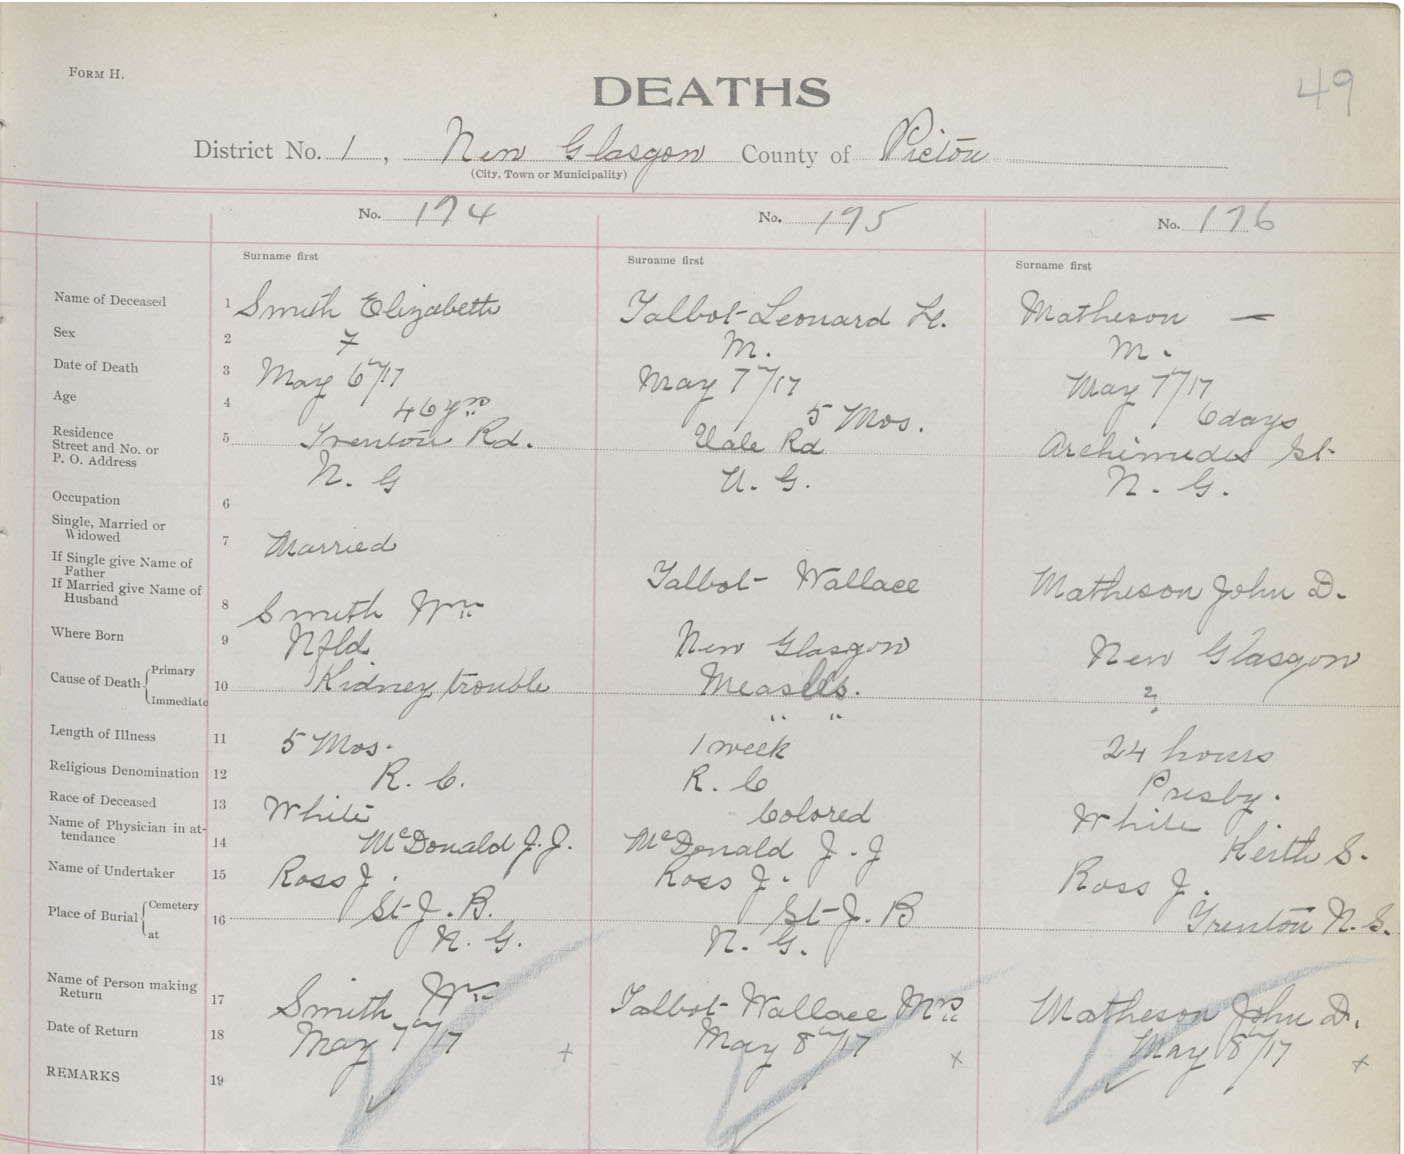 FORM H.
49
DEATHS
District No. 1, New Glasgow County of Pictou
(City, Town or Municipality)
No. 174 No. 175 No. 176
Surname first Surname first Surname first
Name of Deceased 1 Smith Elizabeth Talbot Leonard H. Matheson —
Sex 2 F M. M.
Date of Death 3 May 6th/17 May 7th/17 May 7th/17
Age 4 46 yrs 5 Mos. 6 days
Residence
Street and No. or 5 Trenton Rd. Vale Rd Archimedes St.
P. O. Address N. G N. G. N. G.
Occupation 6
Single, Married or
Widowed 7 Married
If Single give Name of
Father Talbot Wallace Matheson John D.
If Married give Name of
Husband 8 Smith Wm
Where Born 9 Nfld New Glasgow New Glasgow
Cause of Death Primary 10 Kidney trouble Measles. ?
Immediate " "
Length of Illness 11 5 Mos. 1 week 24 hours
Religious Denomination 12 R. C. R. C Presby.
Race of Deceased 13 White Colored White
Name of Physician in at-
tendance 14 McDonald J. J. McDonald J. J Keith S.
Name of Undertaker 15 Ross J. Ross J. Ross J.
Place of Burial Cemetery 16 St J. B. St J. B Trenton N. S.
at N. G. N. G.
Name of Person making
Return 17 Smith Wm Talbot Wallace Mrs Matheson John D.
Date of Return 18 May 7th/17 May 8th/17 May 8th/17
x x x
REMARKS 19